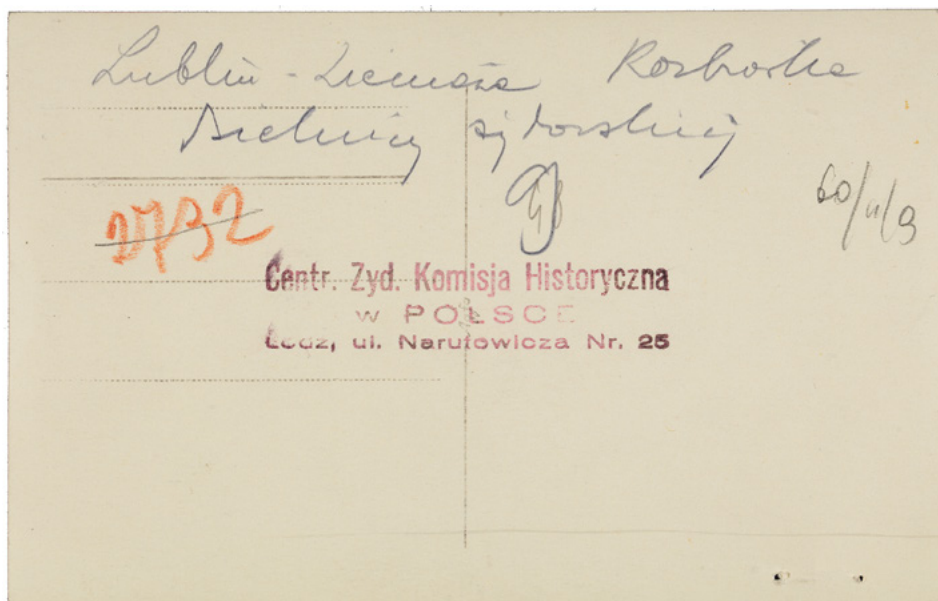 Lublin - Rozbiórka
Dzielnicy żydowskiej
2732
60/11/9
Centr. Zyd. Komisja Historyczna
W POLSCE
Łódz, ul. Narutowicza Nr. 25